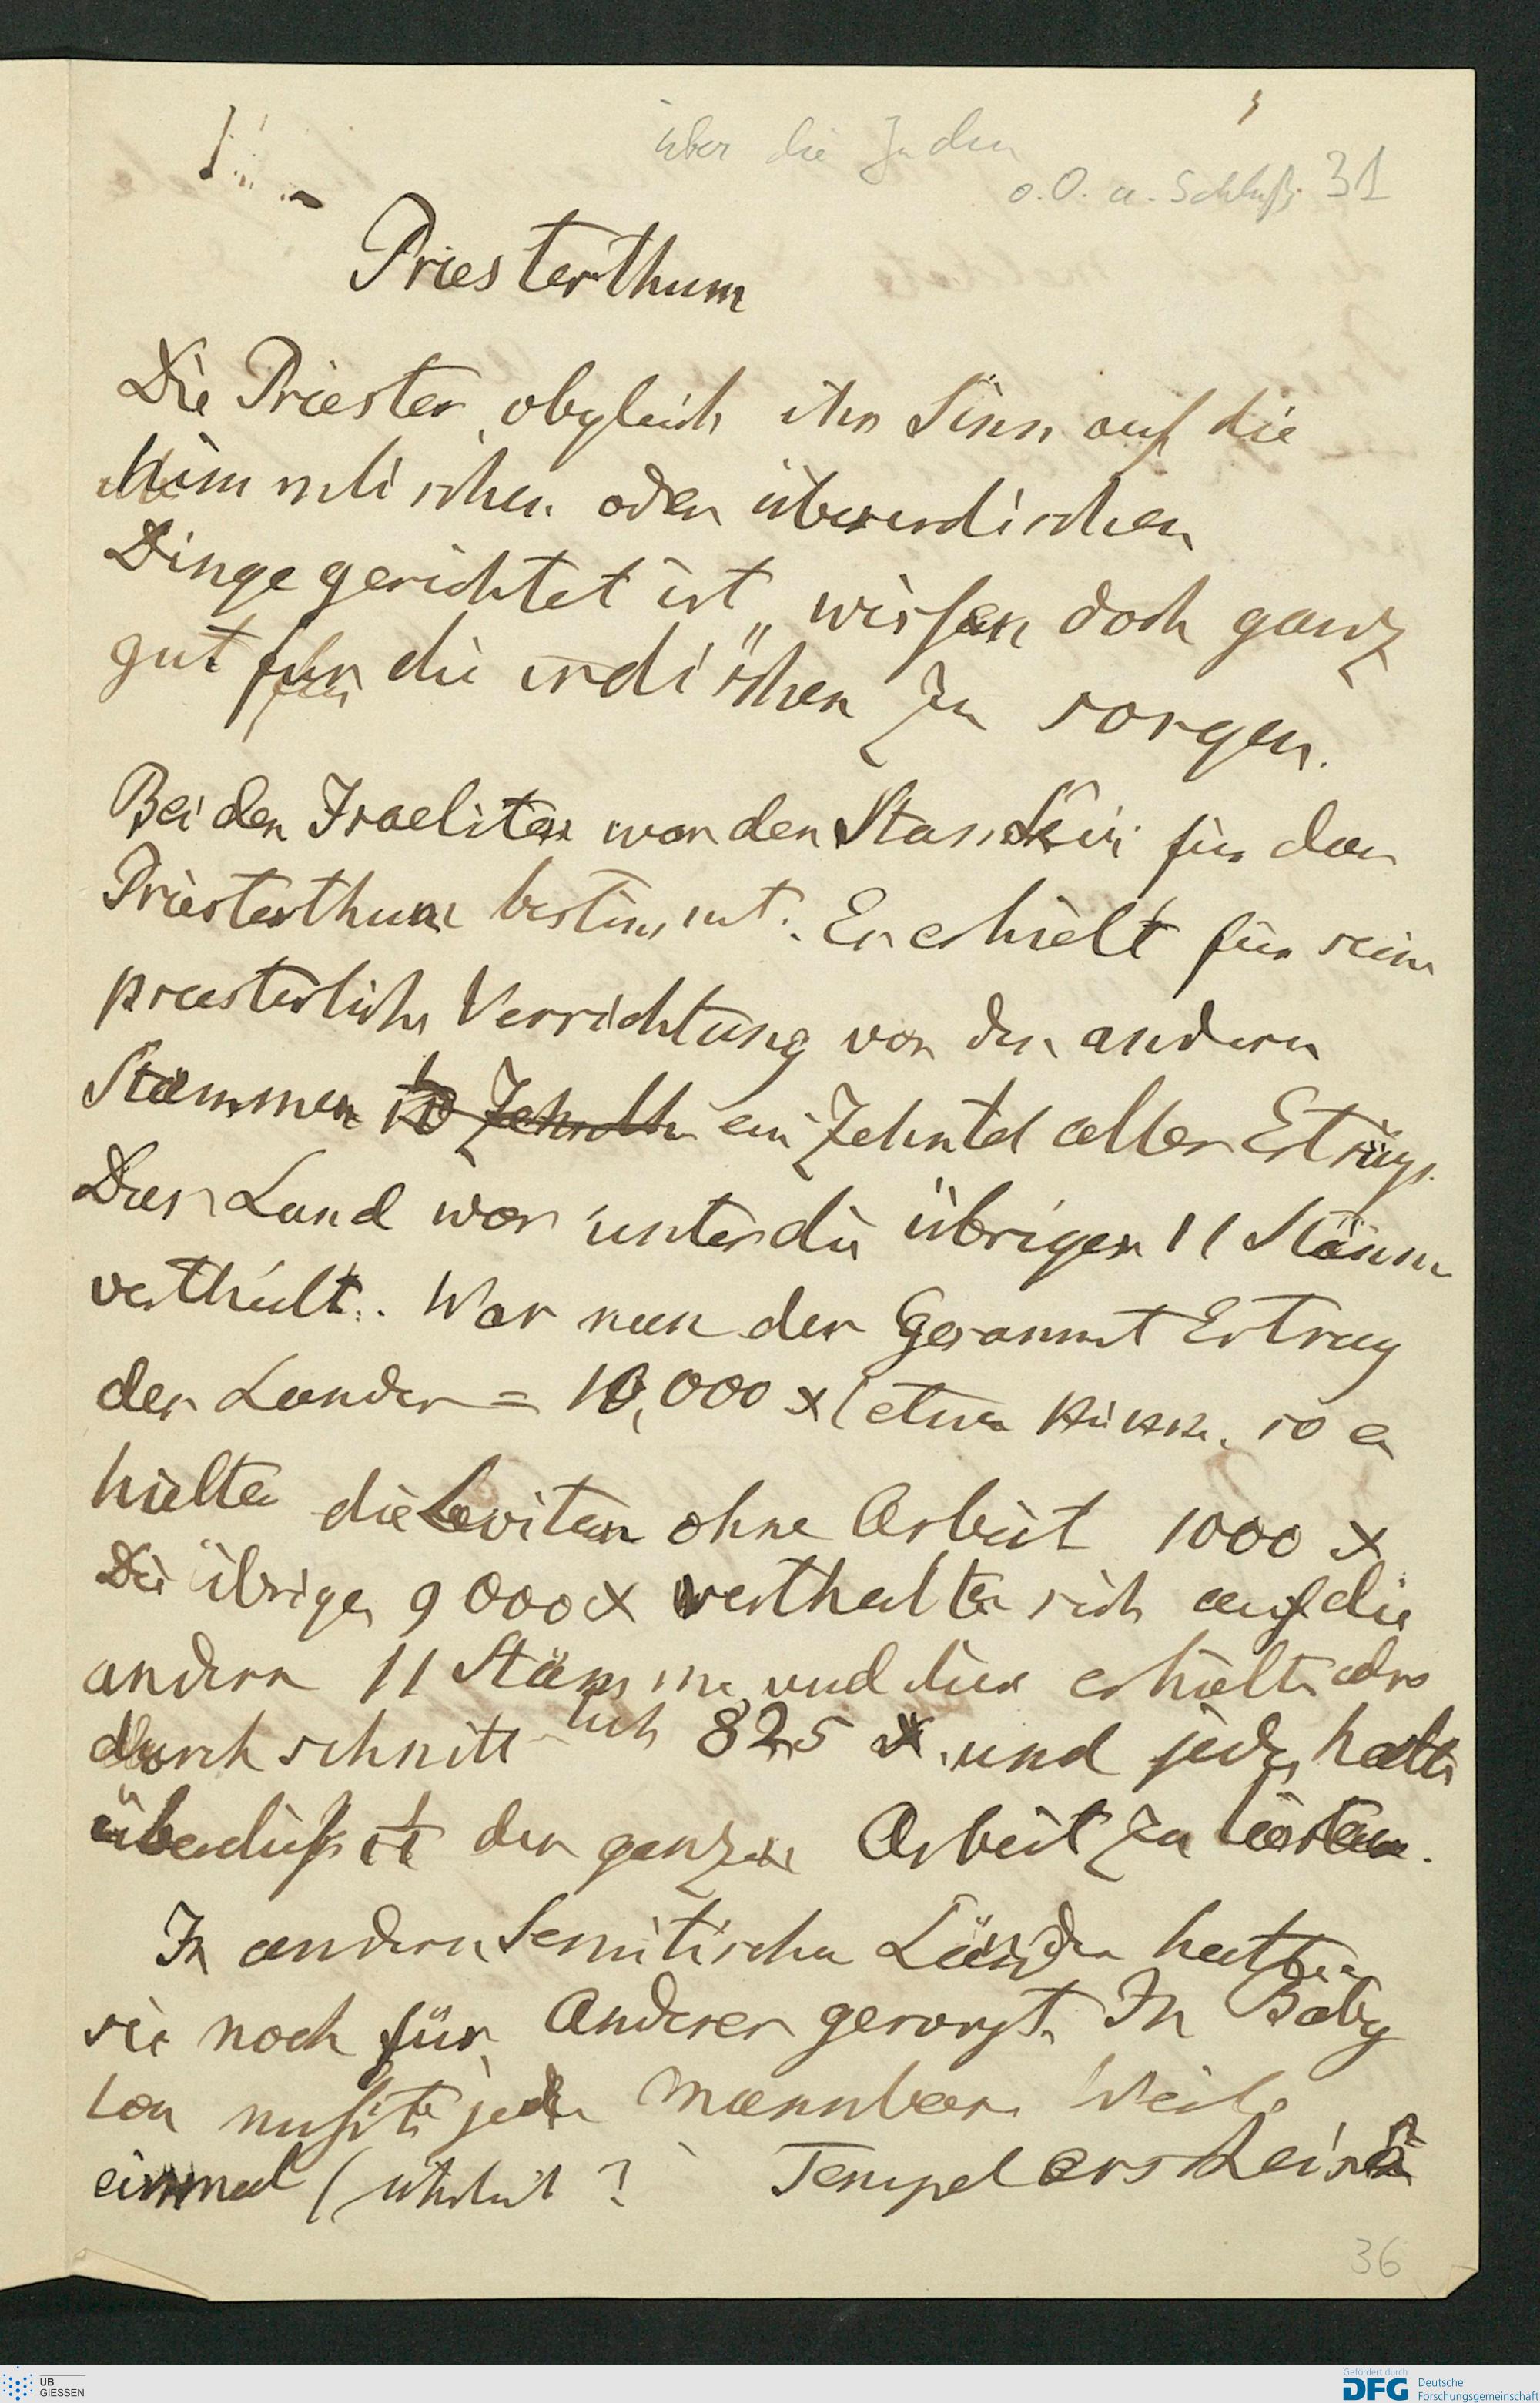 über die Juden
o. O. u. Schluß. 31
Priesterthum
Die Priester, obgleich ihr Sinn auf die
himmlischen oder überirdischen
Dinge gerichtet ist, wissen doch ganz
gut für die irdischen zu sorgen.
Bei den Israeliten war der Stam Levi für das
Priesterthum bestimmt. Er erhielt für seine
priesterliche Verrichtung von den andern
Stämmen 1/10 ein Zehntel aller Erträge.
Das Land war unter die übrigen 11 Stämme
vertheilt. War nun der Gesammt Ertrag
der Länder = 10,000 x (etwa so er
hielten die Leviten ohne Arbeit 1000 x
Die übrigen 9000 x vertheilten sich auf die
andern 11 Stämme und diese erhielten also
durchschnittlich 825 x. und jeder hatte
überdieß 1/11 der ganzen Arbeit zu leisten.
In andern Semitischen Ländern hatten
sie noch für Anderes gesorgt. In Baby
lon mußte jede mannbare Weib
einmal ( ? Tempel
36
UB
GIESSEN
Gefördert durch
DFG Deutsche
Forschungsgemeinschaft